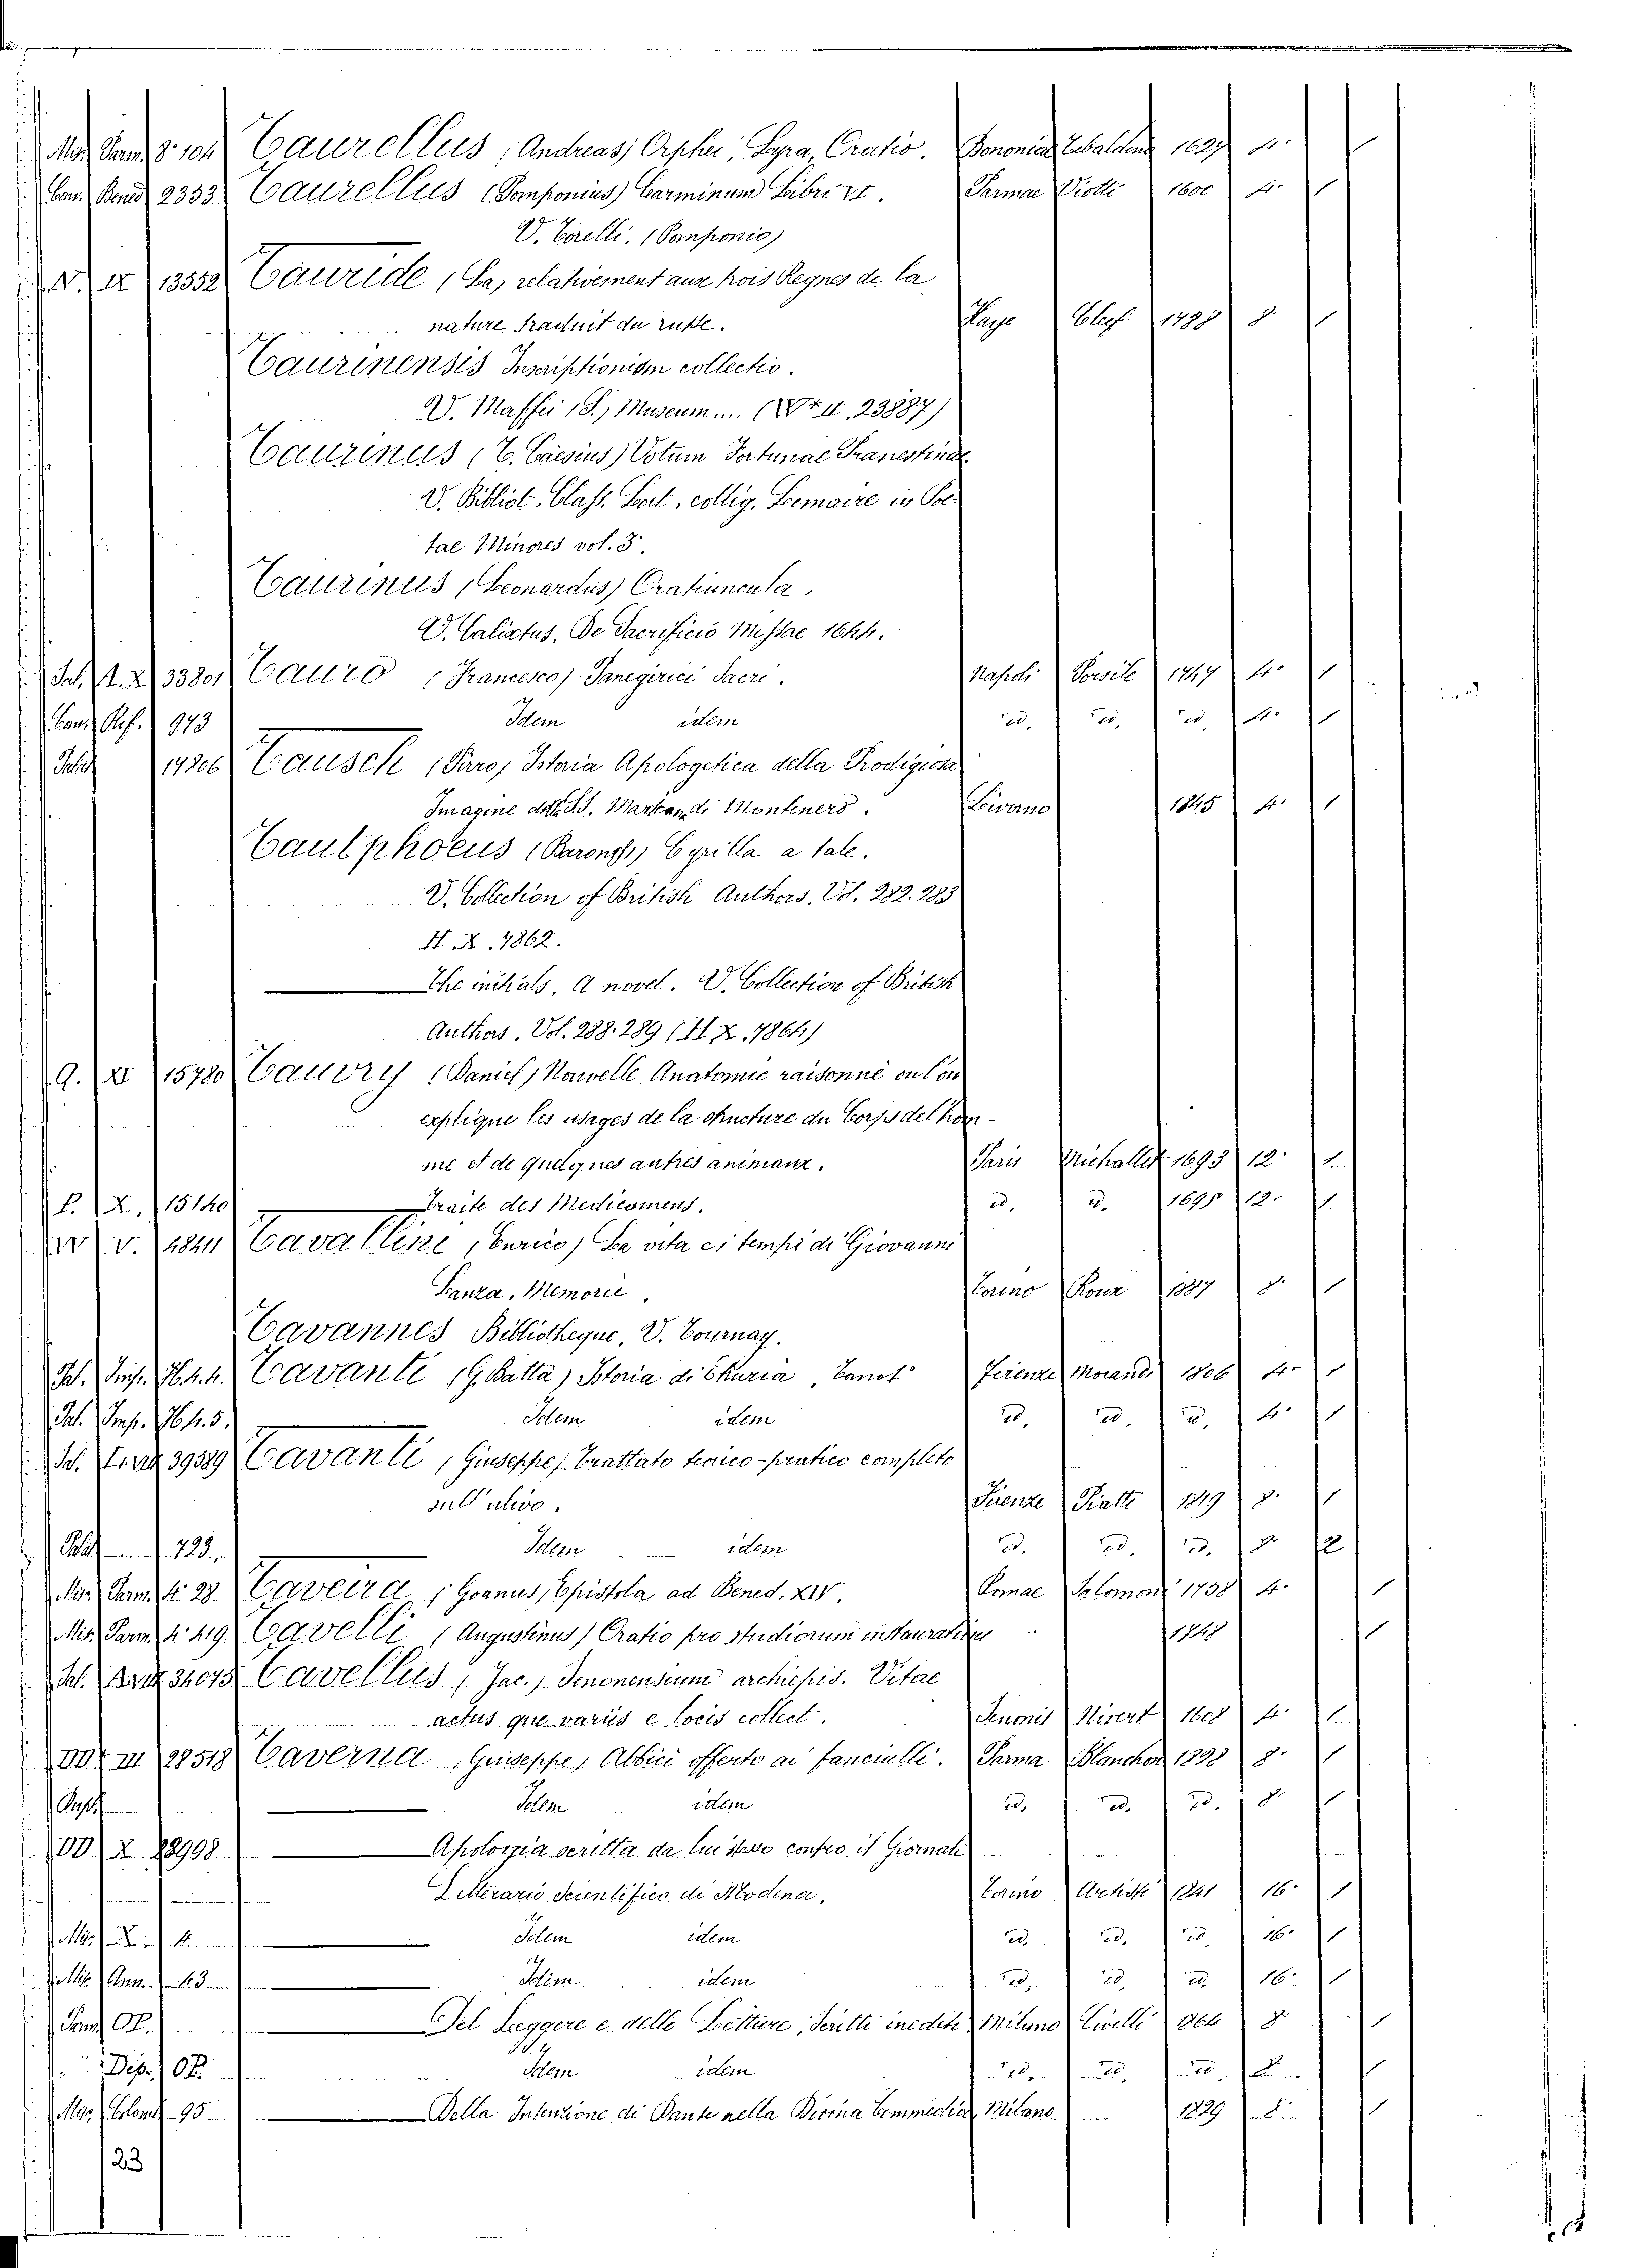 Mis. Parm. 8° 104 Taurellus (Andreas) Orphei Lyra, Oratio. Bononiae Tebaldini 1627 4° 1
Can. Bened. 2353 Taurellus (Pomponius) Carminum Libri VI. Parmae Viotti 1600 4° 1
V. Torelli. (Pomponio)
V. IX 13552 Tauride (La) relativement aux trois Reynes de la
nature traduit du russe. Haye Clef 1788 8° 1
Taurinensis Inscriptionum collectio.
V. Maffei (S.) Museum.... 23887)
Taurinus (T. Caesius) Votum Fortunae Pranestinae.
V. Bibliot. Class. Lat. collig. Lemaire in Poe-
tae Minores vol. 3.
Taurinus (Leonardus) Oratiuncula.
V. Calixtus. De Sacrificio Missae 1644.
Sal. 33801 Tauro (Francesco) Panegirici Sacri. Napoli Porsile 1747 4° 1
Can. Ref. 973 Idem idem id. id. id. 4° 1
14806 Tausch (Paro) Istoria Apologetica della Prodigiosa
Imagine di Montenero. Livorno 1845 4° 1
Tautphoeus (Baroness) Cyrilla a tale.
V. Collection of British Authors. Vol. 282. 283
H. X. 7862.
The initials. A novel. V. Collection of British
Authors. Vol. 288. 289 (H. X. 7864)
Q. XI 15780 Tauvry (Daniel) Nouvelle Anatomie raisonné ou l'on
explique les usages de la structure du Corps de l'hom-
me et de quelques autres animaux. Paris Michallet 1693 12° 1
P. X. 15140 Traite des Medicamens. id. id. 1695 12° 1
V. Tavallini (Enrico) La vita e i tempi di Giovanni
Lanza. Memorie. Torino Roux 1887 8° 1
Tavannes Bibliotheque. V. Tournay.
Sal. Imp. H. 4. 4. Tavanti (G. Batta) Istoria di Etruria Firenze Morandi 1806 4° 1
Sal. Imp. H. 4. 5. Idem idem id. id. id. 4° 1
39589 Tavanti (Giuseppe) Trattato teorico-pratico completo
sull'ulivo. Firenze Piatti 1819 8° 1
723. Idem idem id. id. id. 8° 2
Mis. Parm. 4° 28 Taveira (Goanus) Epistola ad Bened. XIV. Romae Salomoni 1738 4° 1
Mis. Parm. 4° 419. Tavelli (Augustinus) Oratio pro studiorum instauratione 1
Sal. 34075 Tavellus (Jac.) Senonensium archiepis. Vitae
actus que variis e locis collect. Senonis Nivert 1608 4° 1
DD. III 28518 Taverna (Giuseppe) Albici offerto ai fanciulli. Parma Blanchon 1828 8° 1
Idem idem id. id. id. 8° 1
DD. X 28998 Apologia scritta da lui stesso contro il Giornale
Litterario Scientifico di Modena. Torino Artisti 1841 16° 1
Mis. 4 Idem idem id. id. id. 16° 1
Mis. Ann. 43 Idem idem id. id. id. 16° 1
Parm. Op. Del Leggere e delle Letture, Scritti inediti Milano Civelli 8° 1
Dep. Op. Idem idem id. id. id. 8 1
Mis. Colomb. 95 Della Intenzione di Dante nella Divina Commedia Milano 1829 8. 1
23